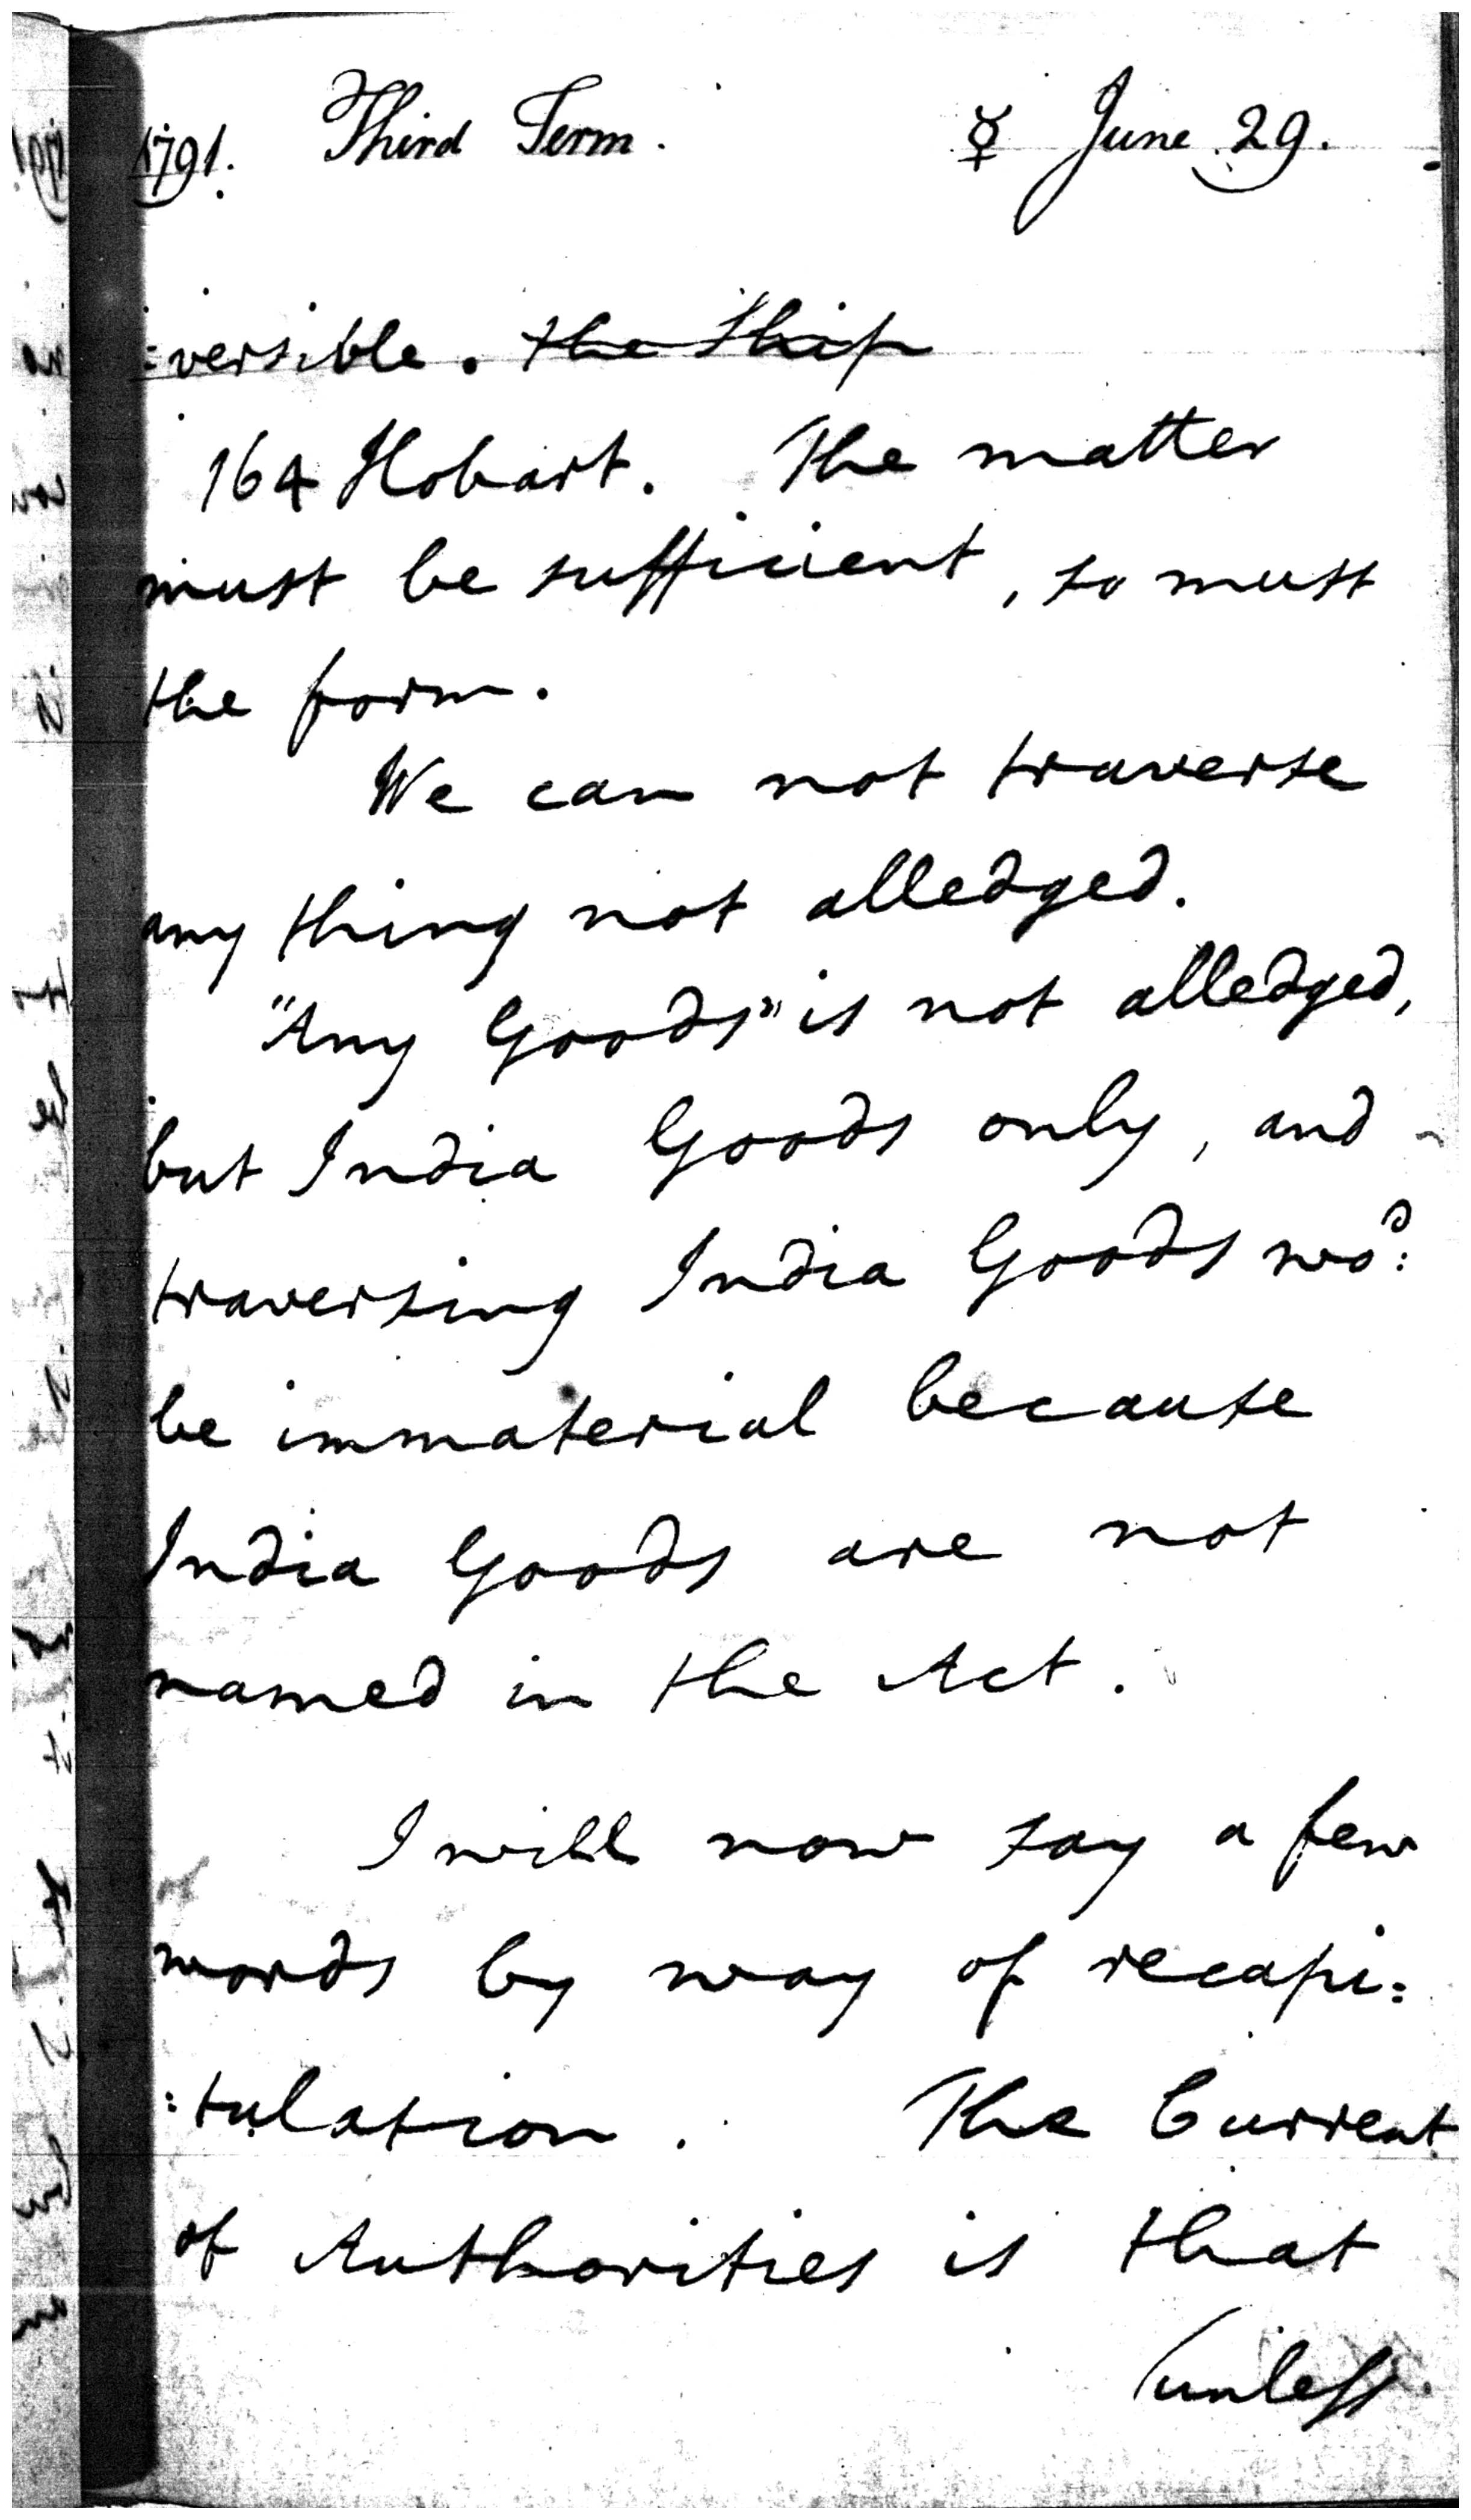 1791. Third Term. ☿ June 29.
:versible. the Ship
164 Hobart. The matter
must be sufficient, so must
the form.
We can not traverse
any thing not alledged.
"Any Goods" is not alledged,
but India Goods only, and
traversing India Goods wo^d:
be immaterial because
India Goods are not
named in the Act.
I will now say a few
words by way of recapi:
:tulation. The Current
of Authorities is that
(unless